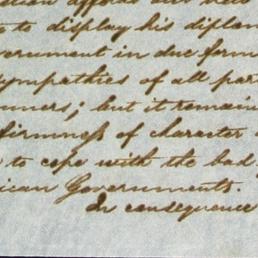 to display his diplom
vernment in due form
sympathies of all par
nners; but it remain
firmness of character
to cope with the bad
ican Governments.
In consequence